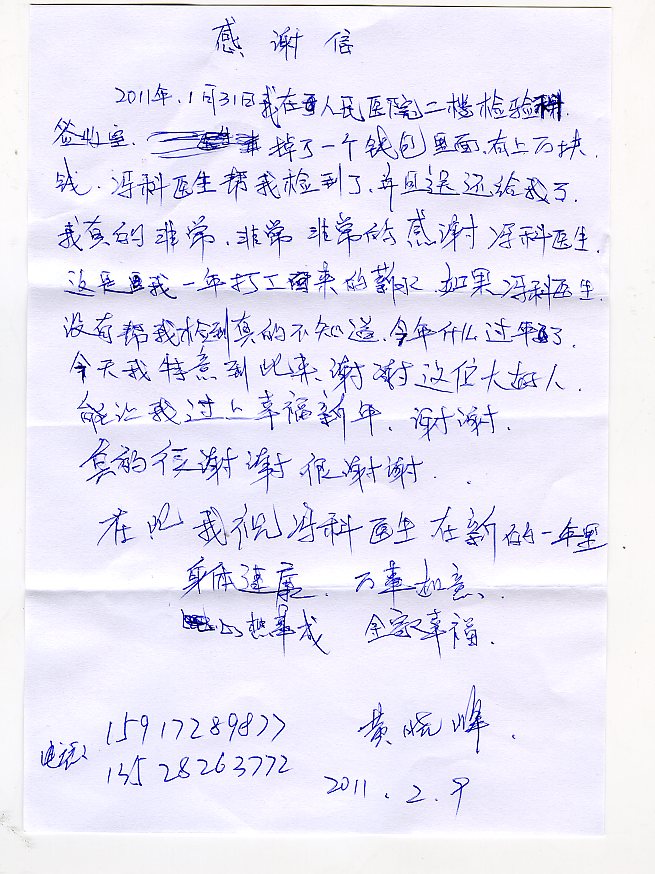 感谢信
2011年.1月31日我在 人民医院二楼检验科.
签收室. 掉了一个钱包里面.有上万块.
钱.冯科医生帮我检到了.并且退还给我了.
我真的非常.非常非常的感谢冯科医生.
这是我一年打工 来的薪水.如果冯科医生.
没有帮我检到真的不知道.今年什么过年了.
今天我特意到此来.谢谢这位大好人.
能让我过上幸福新年.谢谢.
真的很谢谢很谢谢.
在此我祝冯科医生在新的一年里
身体健康.万事如意.
心想事成 全家幸福.
15917289877 黄晓峰.
电话:
13528263772
2011.2.9